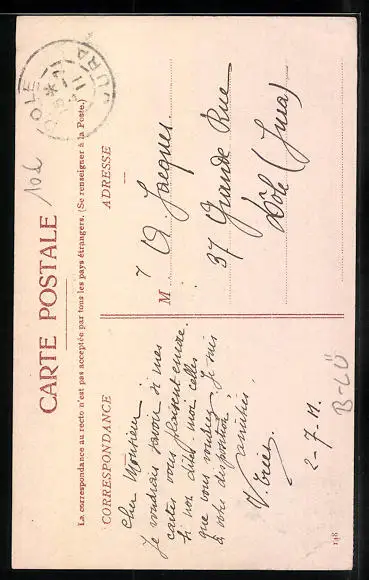 CARTE POSTALE
La correspondance au recto n'est pas acceptée par tous les pays étrangers. (Se renseigner à la Poste.)
CORRESPONDANCE
Cher Monsieur
Je voudrais savoir si mes
cartes vous plaisent encore.
Si non dites-moi celles
que vous voudrez. Je suis
à votre disposition
amitiés.
2-7-11.
148
ADRESSE
M A. Jacques.
37 Grande Rue
Dôle (Jura)
DOLE
JURA
10 L
B-LÜ